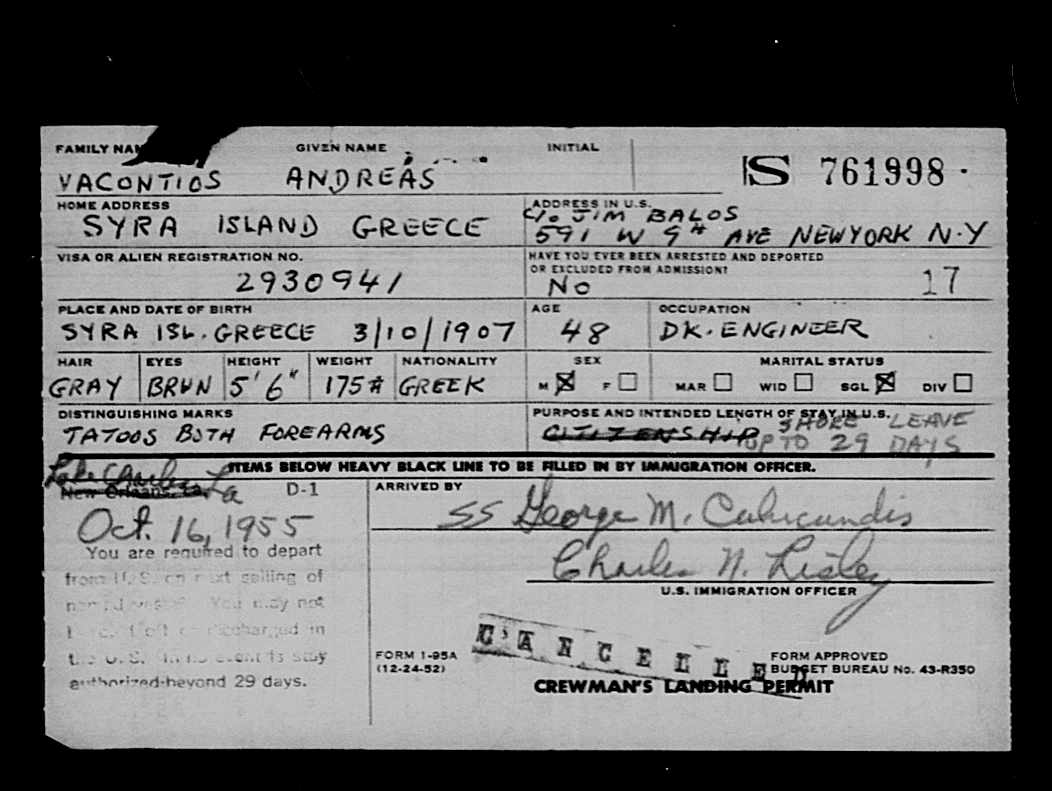 FAMILY NAM GIVEN NAME INITIAL
VACONTIOS ANDREAS
S 761998
HOME ADDRESS ADDRESS IN U.S.
SYRA ISLAND GREECE C/o JIM BALOS
591 W 9TH AVE NEWYORK N.Y
VISA OR ALIEN REGISTRATION NO. HAVE YOU EVER BEEN ARRESTED AND DEPORTED
OR EXCLUDED FROM ADMISSION?
2930941 No 17
PLACE AND DATE OF BIRTH AGE OCCUPATION
SYRA ISL. GREECE 3/10/1907 48 DK. ENGINEER
HAIR EYES HEIGHT WEIGHT NATIONALITY SEX MARITAL STATUS
GRAY BRWN 5'6" 175# GREEK M F MAR WID SGL DIV
DISTINGUISHING MARKS PURPOSE AND INTENDED LENGTH OF STAY IN U.S.
TATOOS BOTH FOREARMS CITIZENSHIP SHORE LEAVE
UP TO 29 DAYS
ITEMS BELOW HEAVY BLACK LINE TO BE FILLED IN BY IMMIGRATION OFFICER.
Lake Charles La
New Orleans, La. D-1 ARRIVED BY
Oct. 16, 1955 SS George M.
You are required to depart
from U. S. on next sailing of
named vessel. You may not
discharged in
the U. S. In no event is stay
authorized beyond 29 days.
Charles N. Risley
U.S. IMMIGRATION OFFICER
CANCELLED
FORM I-95A
(12-24-52)
FORM APPROVED
BUDGET BUREAU No. 43-R350
CREWMAN'S LANDING PERMIT